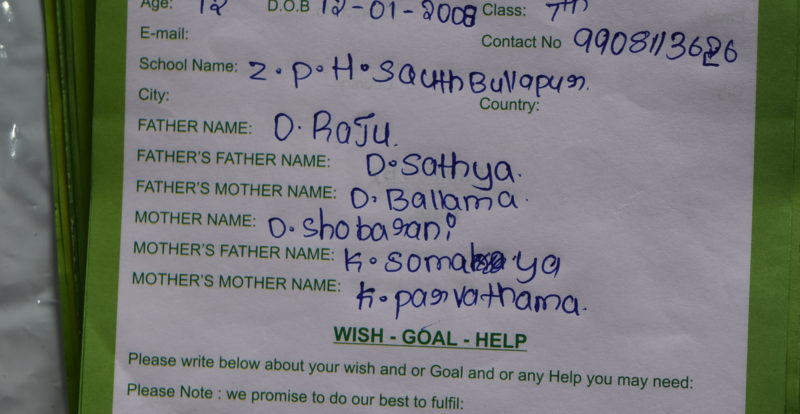 Age: 12 D.O.B 12-01-2008 Class: 7th
E-mail: Contact No
School Name: Z.P.H.South Bullapur.
City: Country:
FATHER NAME: D. Raju.
FATHER'S FATHER NAME: D.Sathya.
FATHER'S MOTHER NAME: D. Ballama.
MOTHER NAME: D.Shobarani
MOTHER'S FATHER NAME:
MOTHER'S MOTHER NAME: K.parvathama.
WISH - GOAL - HELP
Please write below about your wish and or Goal and or any Help you may need:
Please Note : we promise to do our best to fulfil: